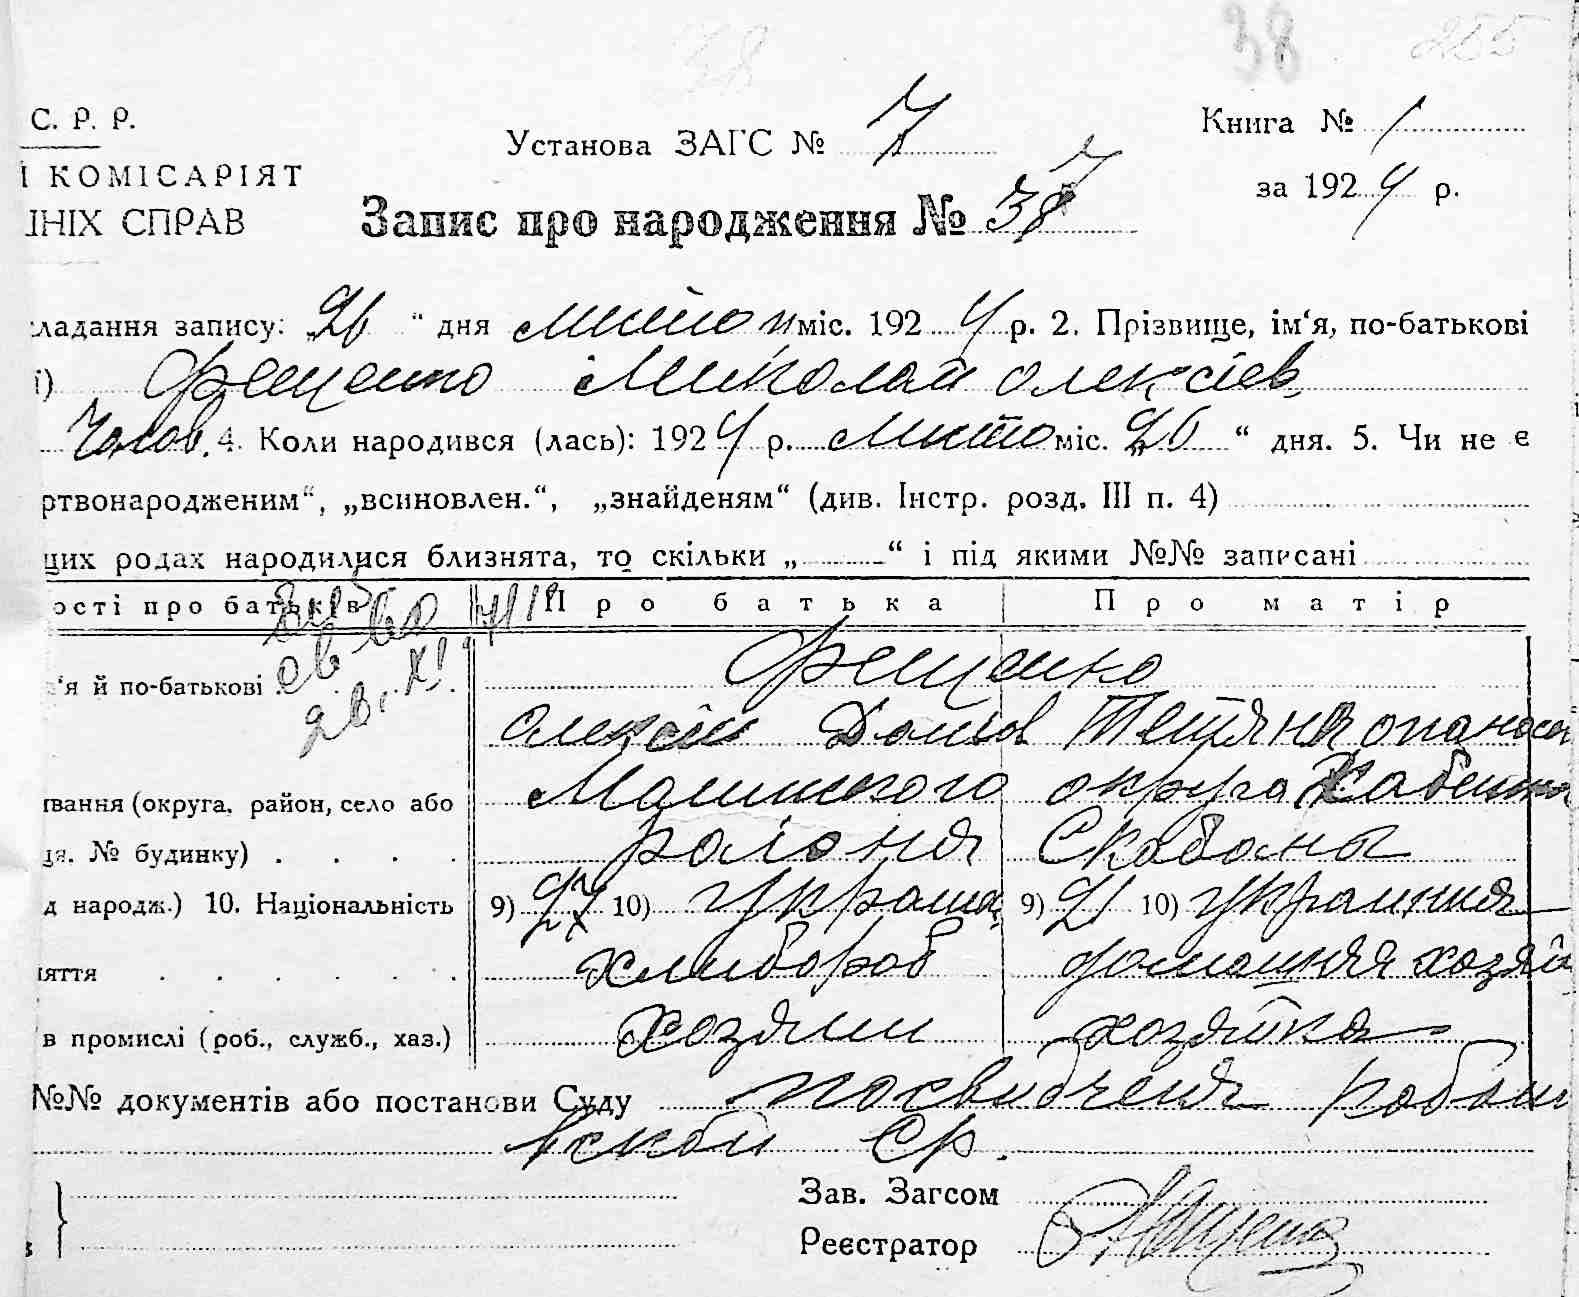 38 255
С. Р. Р.
Установа ЗАГС № 7
Книга № 1
І КОМІСАРІЯТ
за 1924 р.
ІНІХ СПРАВ
Запис про народження № 37
кладання запису: „26 “ дня лютого міс. 1924 р. 2. Прізвище, ім‘я, по-батькові
і) Фещенко Миколай олексіев
Чолов. 4. Коли народився (лась): 1924 р. лютого міс. „26 “ дня. 5. Чи не є
ртвонародженим“, „всиновлен.“, „знайденям“ (див. Інстр. розд. ІІІ п. 4)
цих родах народилися близнята, то скільки „ “ і під якими №№ записані
ості про батьків Про батька Про матір
‘я й по-батькові Фещенко
олексій Домков Тетяна опанасов
вання (округа, район, село або Малинского округа Хабенск
ця, № будинку) района Скабоны
д народж.) 10. Національність 9) 27 10) украина 9) 21 10) украиния
яття хлибороб домашняя хозяй
в промислі (роб., служб., хаз.) хозяин хозяйка
№№ документів або постанови Суду посвидченя
ской Ср.
Зав. Загсом
Реєстратор